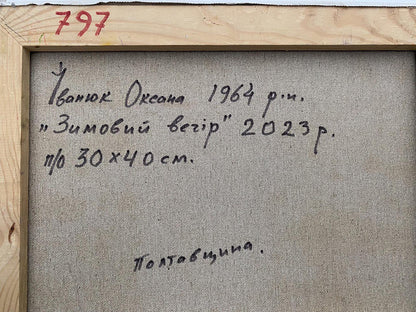 797
Іванюк Оксана 1964 р.н.
„Зимовий вечір" 2023 р.
п/о 30×40 см.
Полтавщина.